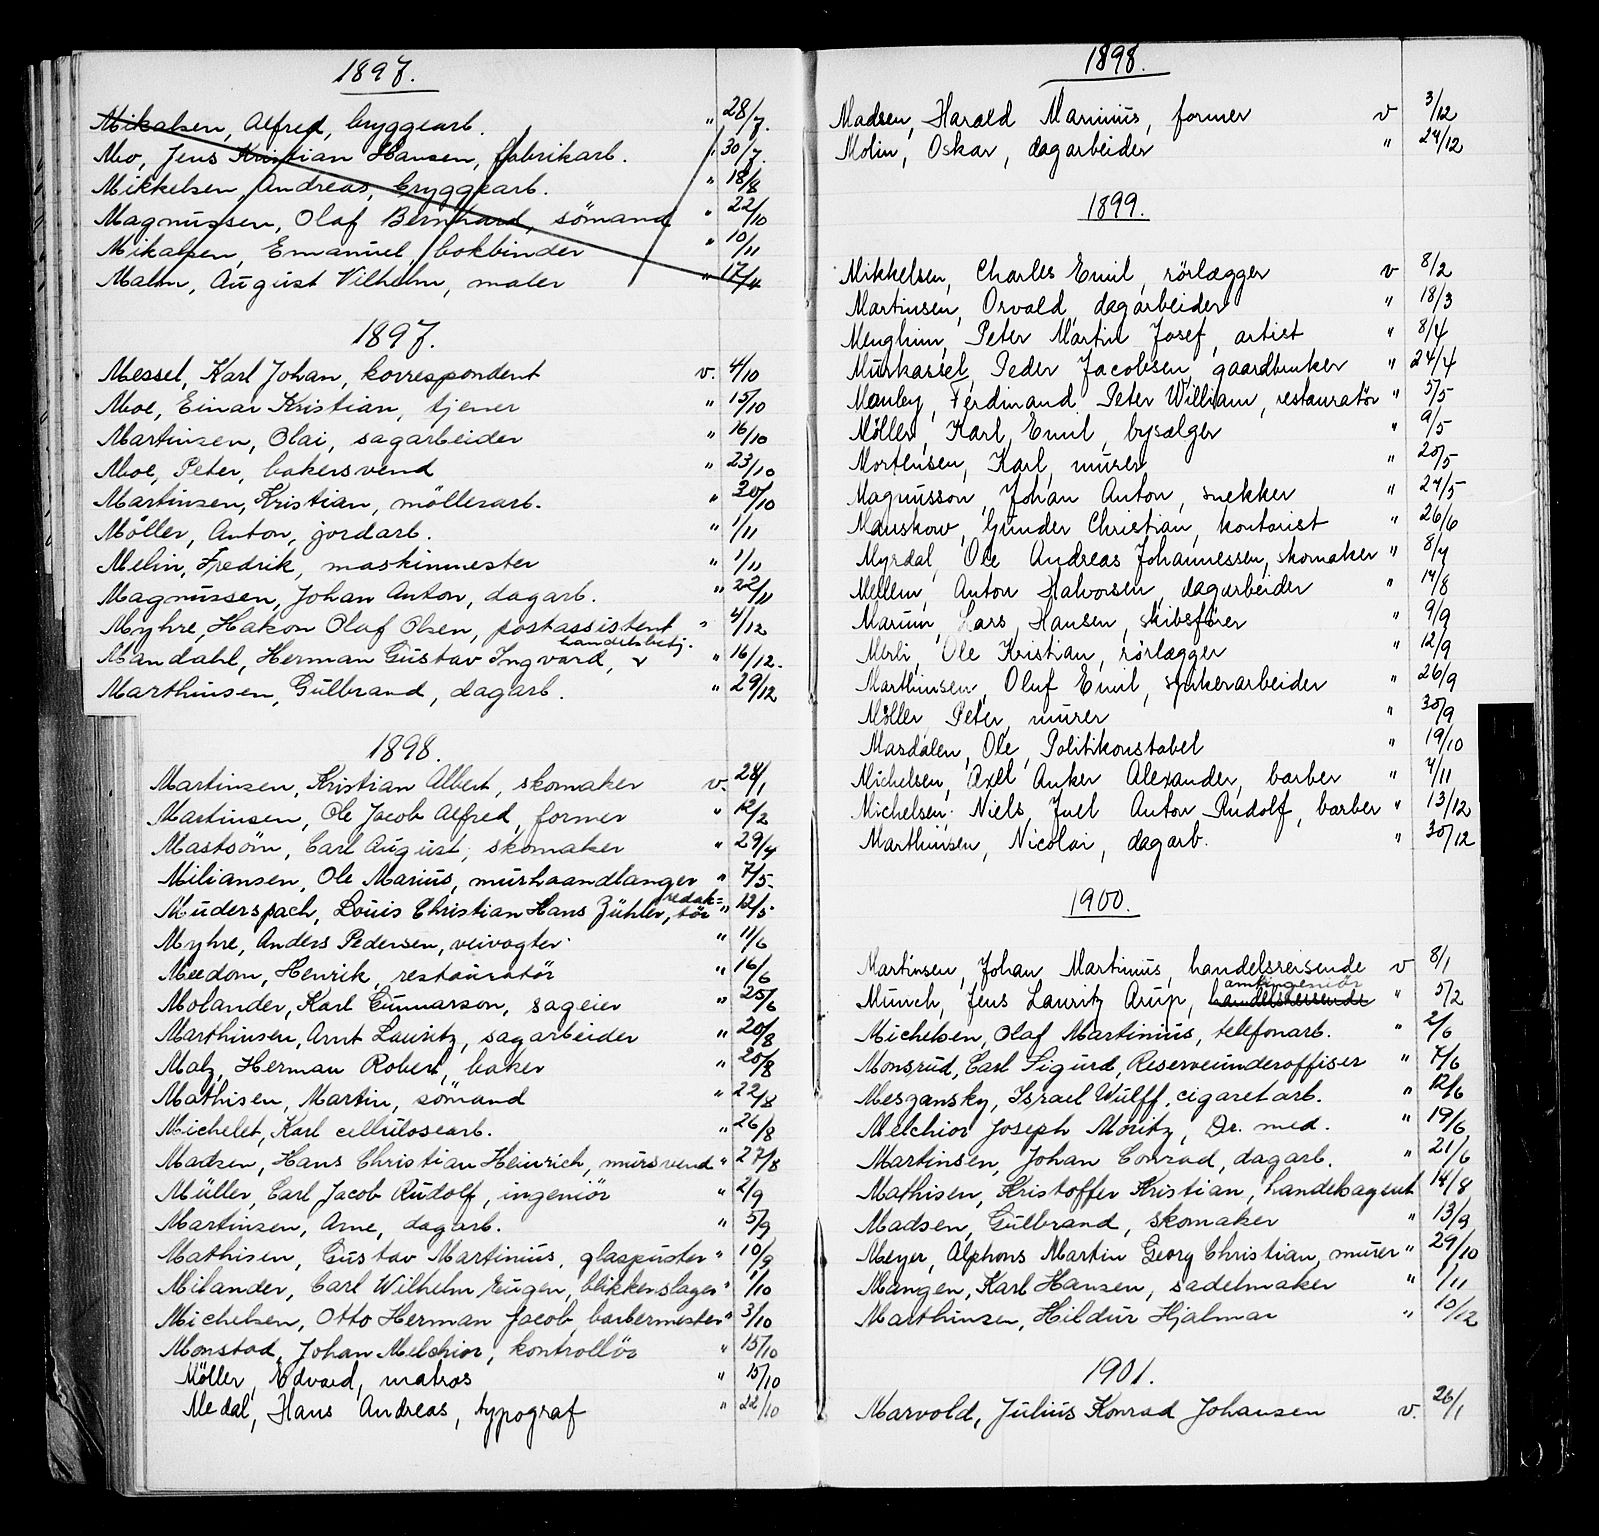 1897.
Mikalsen, Alfred, bryggearb. " 28/7.
Mo, Jens Kristian Hansen, fabrikarb. " 30/7.
Mikkelsen, Andreas, bryggearb. " 18/8
Magnussen, Olaf Bernhard, sömand " 22/10
Mikalsen, Emanuel, bokbinder " 10/11
Malm, August Vilhelm, maler " 17/4
1897.
Messel, Karl Johan, korrespondent v. 4/10
Moe, Einar Kristian, tjener " 15/10
Martinsen, Olai, sagarbeider " 16/10
Moe, Peter, bakersvend " 23/10
Martinsen, Kristian, möllerarb. " 30/10
Möller, Anton, jordarb. " 1/11
Melin, Fredrik, maskinmester " 1/11
Magnussen, Johan Anton, dagarb. " 22/11
Myhre, Hakon Olaf Olsen, postassistent " 4/12
handelsbetj.
Mandahl, Herman Gustav Ingvard, v " 16/12.
Marthinsen, Gulbrand, dagarb. " 29/12
1898.
Martinsen, Kristian Albert, skomaker v. 28/1
Martinsen, Ole Jacob Alfred, former " 12/2
Mastsöm, Carl August, skomaker " 29/4
Miliansen, Ole Marius, murhaandlanger " 7/5.
redak=
Muderspach, Louis Christian Hans Zühler, tör " 12/5
Myhre, Anders Pedersen, veivogter " 11/6
Meedom, Henrik, restauratör " 16/6
Molander, Karl Gunnarson, sageier " 25/6
Marthinsen, Arnt Lauritz, sagarbeider " 20/8
Malz, Herman Robert, baker " 20/8
Mathisen, Martin, sömand " 22/8
Michelet, Karl cellulosearb. " 26/8
Madsen, Hans Christian Heinrich, mursvend " 27/8
Müller, Carl Jacob Rudolf, ingeniör " 2/9
Martinsen, Arne, dagarb. " 5/9
Mathisen, Gustav Martinius, glaspuster " 10/9
Milander, Carl Wilhelm Eugen, blikkenslager " 1/10
Michelsen, Otto Herman Jacob, barbermester " 3/10
Monstad, Johan Melchior, kontrollör " 15/10
Möller, Edvard, matros " 15/10
Medal, Hans Andreas, typograf " 22/10
1898.
Madsen, Harald Marinius, former v 3/12
Molin, Oskar, dagarbeider " 24/12
1899.
Mikkelsen, Charles Emil, rörlægger v 8/2
Martinsen, Osvald, dagarbeider " 18/3
Menghini, Peter Martin Josef, artist " 8/4
Murkassel, Peder Jacobsen, gaardbruker " 24/4
Manley, Ferdinand Peter William, restauratör " 5/5
Möller, Karl Emil, bysælger " 9/5
Mortensen, Karl, murer " 20/5
Magnusson, Johan Anton, snekker " 27/5
Manskow, Gunder Christian, kontorist " 26/6
Myrdal, Ole Andreas Johannessen, skomaker " 8/7
Mellem, Anton Halvorsen, dagarbeider " 14/8
Marum, Lars Hansen, skibsförer " 9/9
Merli, Ole Kristian, rörlægger " 12/9
Marthinsen, Oluf Emil, spikerarbeider " 26/9
Möller, Peter, murer " 30/9
Masdalen, Ole, Politikonstabel " 19/10
Michelsen, Axel Anker Alexander, barber " 4/11
Michelsen, Niels Juel Anton Rudolf, barber " 13/12
Marthinsen, Nicolai, dagarb. " 30/12
1900.
Martinsen, Johan Martinus, handelsreisende v 8/1
amtingeniör
Munch, Jens Lauritz Arup, handelsreisende " 5/2
Michelsen, Olaf Martinius, telefonarb. " 2/6
Monsrud, Carl Sigurd, Reserveunderoffiser " 7/6
Meszansky, Israel Wulff, cigaretarb. " 12/6
Melchior Joseph Moritz, Dr. med. " 19/6
Martinsen, Johan Conrad, dagarb. " 21/6
Mathisen, Kristoffer Kristian, handelsagent 14/8
Madsen, Gulbrand, skomaker " 13/9
Meyer, Alphons Martin Georg Christian, murer " 29/10
Mangen, Karl Hansen, sadelmaker " 1/11
Marthinsen, Hildur Hjalmar " 10/12
1901.
Marvold, Julius Konrad Johansen v. 26/1